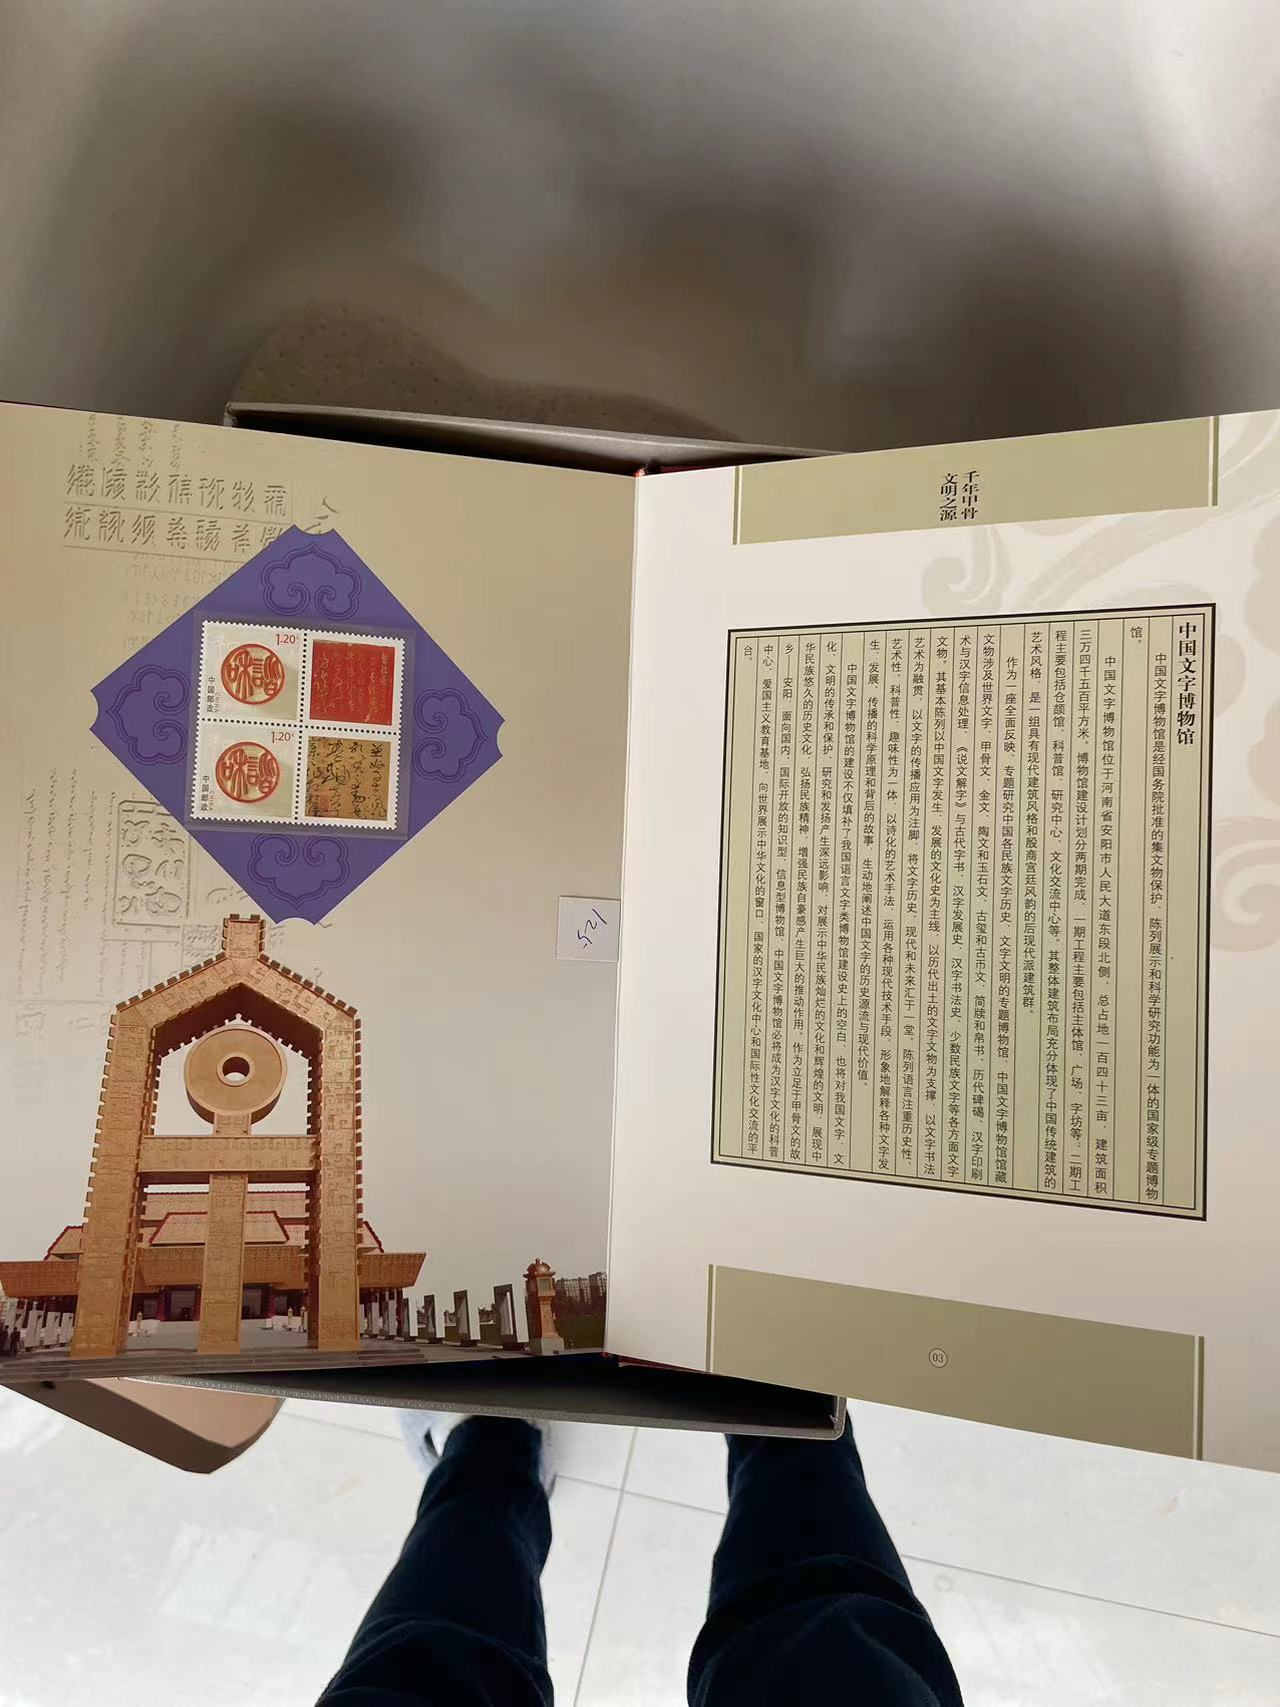 1.20
和諧
中国邮政
1.20
和諧
中国邮政
千年甲骨
文明之源
中国文字博物馆
中国文字博物馆是经国务院批准的集文物保护、陈列展示和科学研究功能为一体的国家级专题博物
馆。
中国文字博物馆位于河南省安阳市人民大道东段北侧，总占地一百四十三亩，建筑面积
三万四千五百平方米。博物馆建设计划分两期完成，一期工程主要包括主体馆、广场、字坊等；二期工
程主要包括仓颉馆、科普馆、研究中心、文化交流中心等。其整体建筑布局充分体现了中国传统建筑的
艺术风格，是一组具有现代建筑风格和殷商宫廷风韵的后现代派建筑群。
作为一座全面反映、专题研究中国各民族文字历史、文字文明的专题博物馆，中国文字博物馆馆藏
文物涉及世界文字、甲骨文、金文、陶文和玉石文、古玺和古币文、简牍和帛书、历代碑碣、汉字印刷
术与汉字信息处理、《说文解字》与古代字书、汉字发展史、汉字书法史、少数民族文字等各方面文字
文物，其基本陈列以中国文字发生、发展的文化史为主线，以历代出土的文字文物为支撑，以文字书法
艺术为融贯，以文字的传播应用为注脚，将文字历史、现代和未来汇于一堂。陈列语言注重历史性、
艺术性、科普性、趣味性为一体，以诗化的艺术手法，运用各种现代技术手段，形象地解释各种文字发
生、发展、传播的科学原理和背后的故事，生动地阐述中国文字的历史源流与现代价值。
中国文字博物馆的建设不仅填补了我国语言文字类博物馆建设史上的空白，也将对我国文字、文
化、文明的传承和保护、研究和发扬产生深远影响，对展示中华民族灿烂的文化和辉煌的文明，展现中
华民族悠久的历史文化，弘扬民族精神，增强民族自豪感产生巨大的推动作用。作为立足于甲骨文的故
乡——安阳，面向国内、国际开放的知识型、信息型博物馆，中国文字博物馆必将成为汉字文化的科普
中心、爱国主义教育基地、向世界展示中华文化的窗口、国家的汉字文化中心和国际性文化交流的平
台。
03